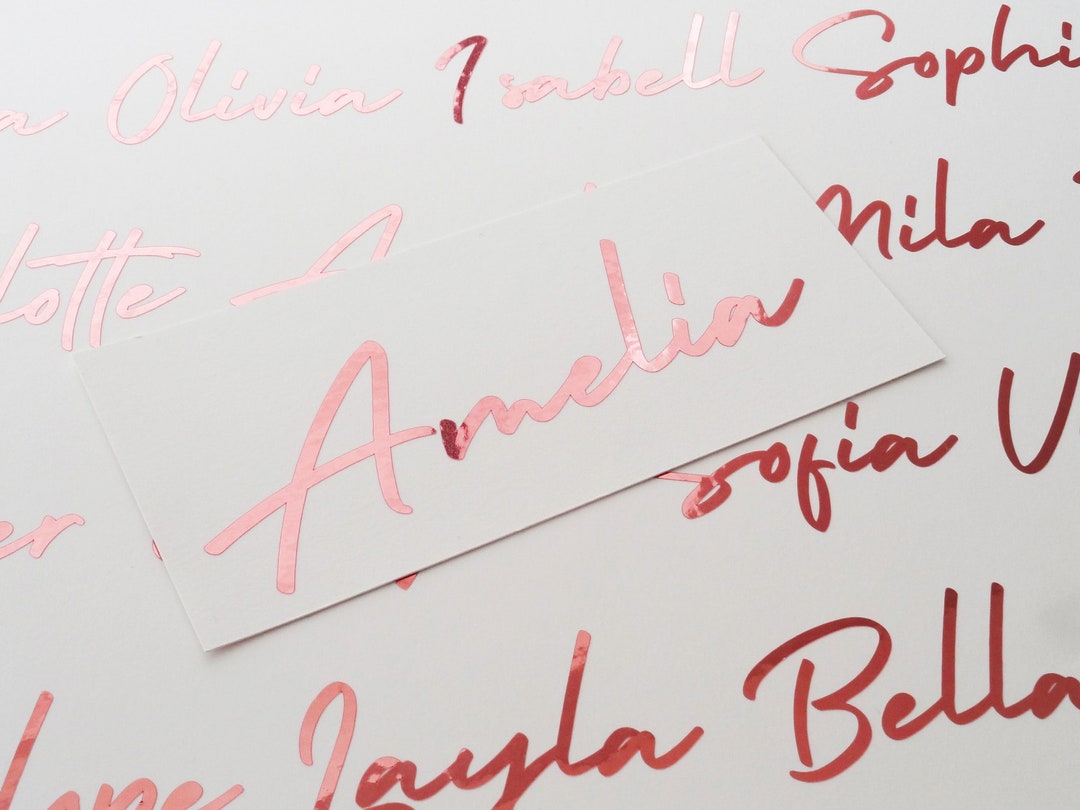 a Olivia Isabell Sophi
lotte A Mila
Amelia
er Sofia V
lope Jayla Bella